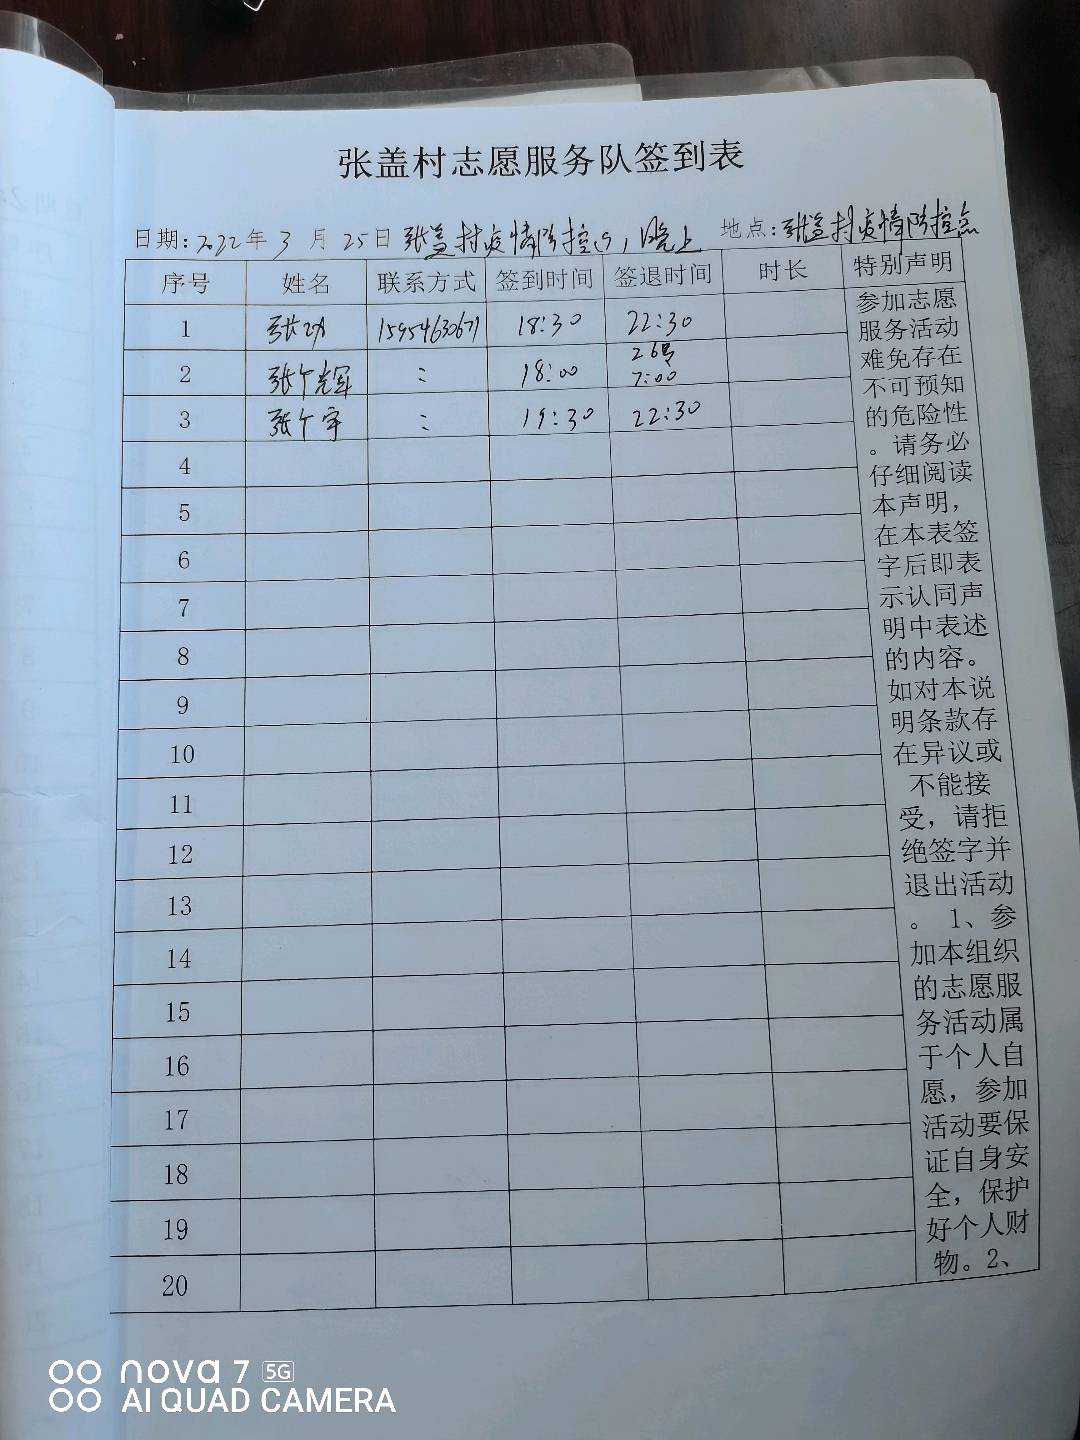 张盖村志愿服务队签到表
日期:2022年3月25日 张盖村疫情防控点,晚上 地点:张盖村疫情防控点
序号 姓名 联系方式 签到时间 签退时间 时长 特别声明
1 张 15954630671 18:30 22:30
2 张个辉 : 18:00 26号 7:00
3 张个宇 : 19:30 22:30
4
5
6
7
8
9
10
11
12
13
14
15
16
17
18
19
20
参加志愿
服务活动
难免存在
不可预知
的危险性
。请务必
仔细阅读
本声明,
在本表签
字后即表
示认同声
明中表述
的内容。
如对本说
明条款存
在异议或
不能接
受,请拒
绝签字并
退出活动
。 1、参
加本组织
的志愿服
务活动属
于个人自
愿,参加
活动要保
证自身安
全,保护
好个人财
物。2、
nova 7 5G
AI QUAD CAMERA